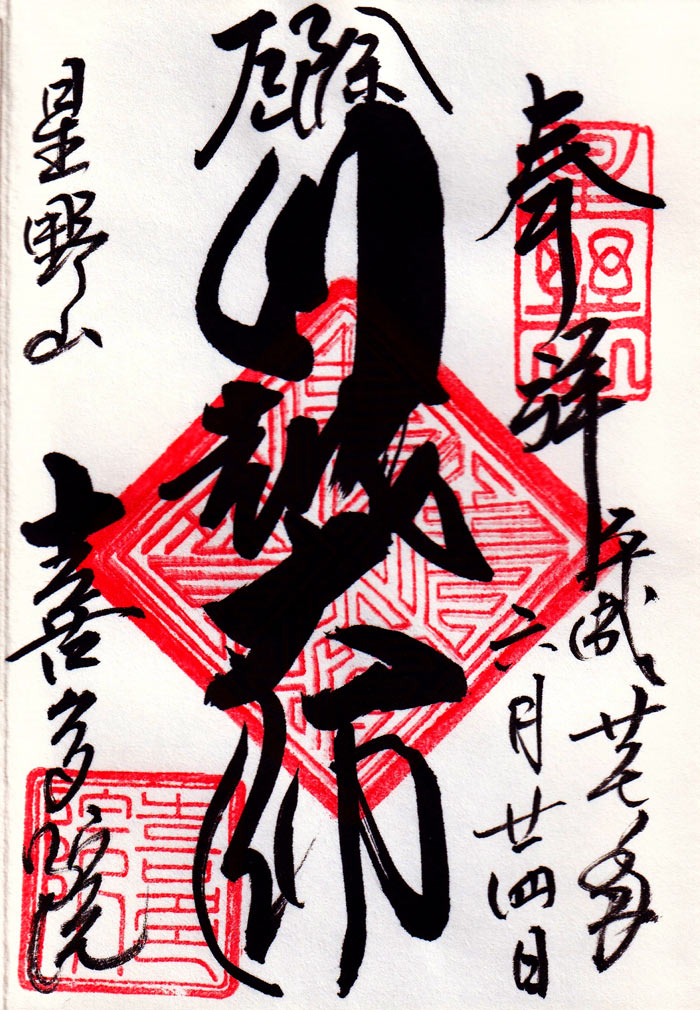 奉拝
平成廿七年
六月廿四日
星野山
厄除
川越大師
星野山
喜多院
喜多院